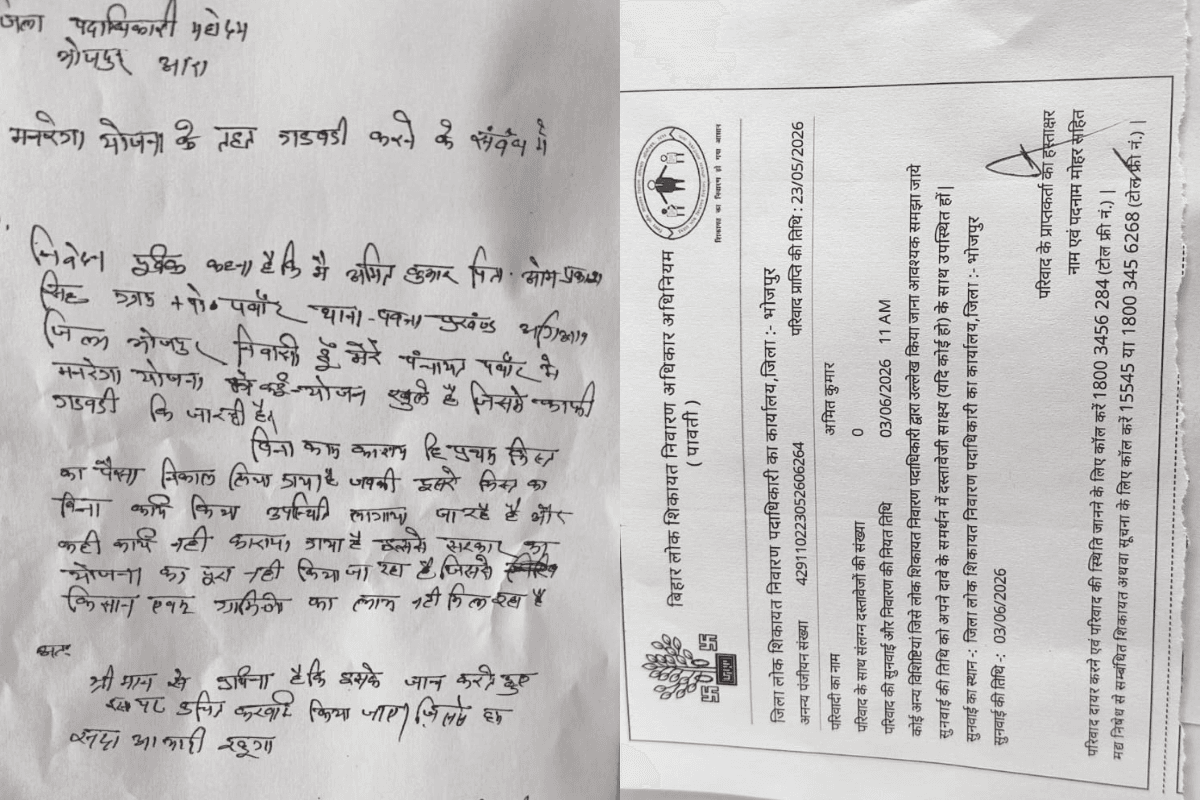 जिला पदाधिकारी महोदय
भोजपुर आरा
मनरेगा योजना के तहत गडवडी करने के संबंध में
निवेदन पूर्वक कहना है कि मै अमित कुमार पिता - ओम प्रकाश
सिंह ग्राम + पो० पवाँर थाना - पवना प्रखंड अगिआंव
जिला भोजपुर निवासी हूँ मेरे पंचायत पवाँर मे
मनरेगा योजना कई योजन खुले है जिसमे काफी
गडवडी कि जा रही है।
विना काम कराय हि प्रथम किस्त
का पैसा निकाल लिया गया है जबकी दुसरे किस्त का
विना कार्य किया उपस्थिति लागाया जा रहै है और
कही कार्य नही काराया गया है इससे सरकार का
योजना का पुरा नही किया जा रहा है जिससे
किसान एवम ग्रामिणो का लाभ नही मिल रहा है
अतः
श्री मान से प्रार्थना है कि इसके जाच करते हुए
इस पर उचित करवाई किया जाए जिससे हम
सदा आभारी रहूगा
बिहार लोक शिकायत निवारण अधिकार अधिनियम
( पावती )
शिकायत का निवारण हो गया आसान
जिला लोक शिकायत निवारण पदाधिकारी का कार्यालय,जिला :- भोजपुर
अनन्य पंजीयन संख्या 429110223052606264 परिवाद प्राप्ति की तिथि : 23/05/2026
परिवादी का नाम अमित कुमार
परिवाद के साथ संलग्न दस्तावेजों की संख्या 0
परिवाद की सुनवाई और निवारण की नियत तिथि 03/06/2026 11 AM
कोई अन्य विशिष्टियां जिसे लोक शिकायत निवारण पदाधिकारी द्वारा उल्लेख किया जाना आवश्यक समझा जाये
सुनवाई की तिथि को अपने दावे के समर्थन में दस्तावेजी साक्ष्य (यदि कोई हो) के साथ उपस्थित हों|
सुनवाई का स्थान -: जिला लोक शिकायत निवारण पदाधिकारी का कार्यालय,जिला :- भोजपुर
सुनवाई की तिथि -: 03/06/2026
परिवाद के प्राप्तकर्ता का हस्ताक्षर
नाम एवं पदनाम मोहर सहित
परिवाद दायर करने एवं परिवाद की स्थिति जानने के लिए कॉल करें 1800 3456 284 (टोल फ्री नं.) |
मद्य निषेध से सम्बंधित शिकायत अथवा सूचना के लिए कॉल करें 15545 या 1800 345 6268 (टोल फ्री नं.) |